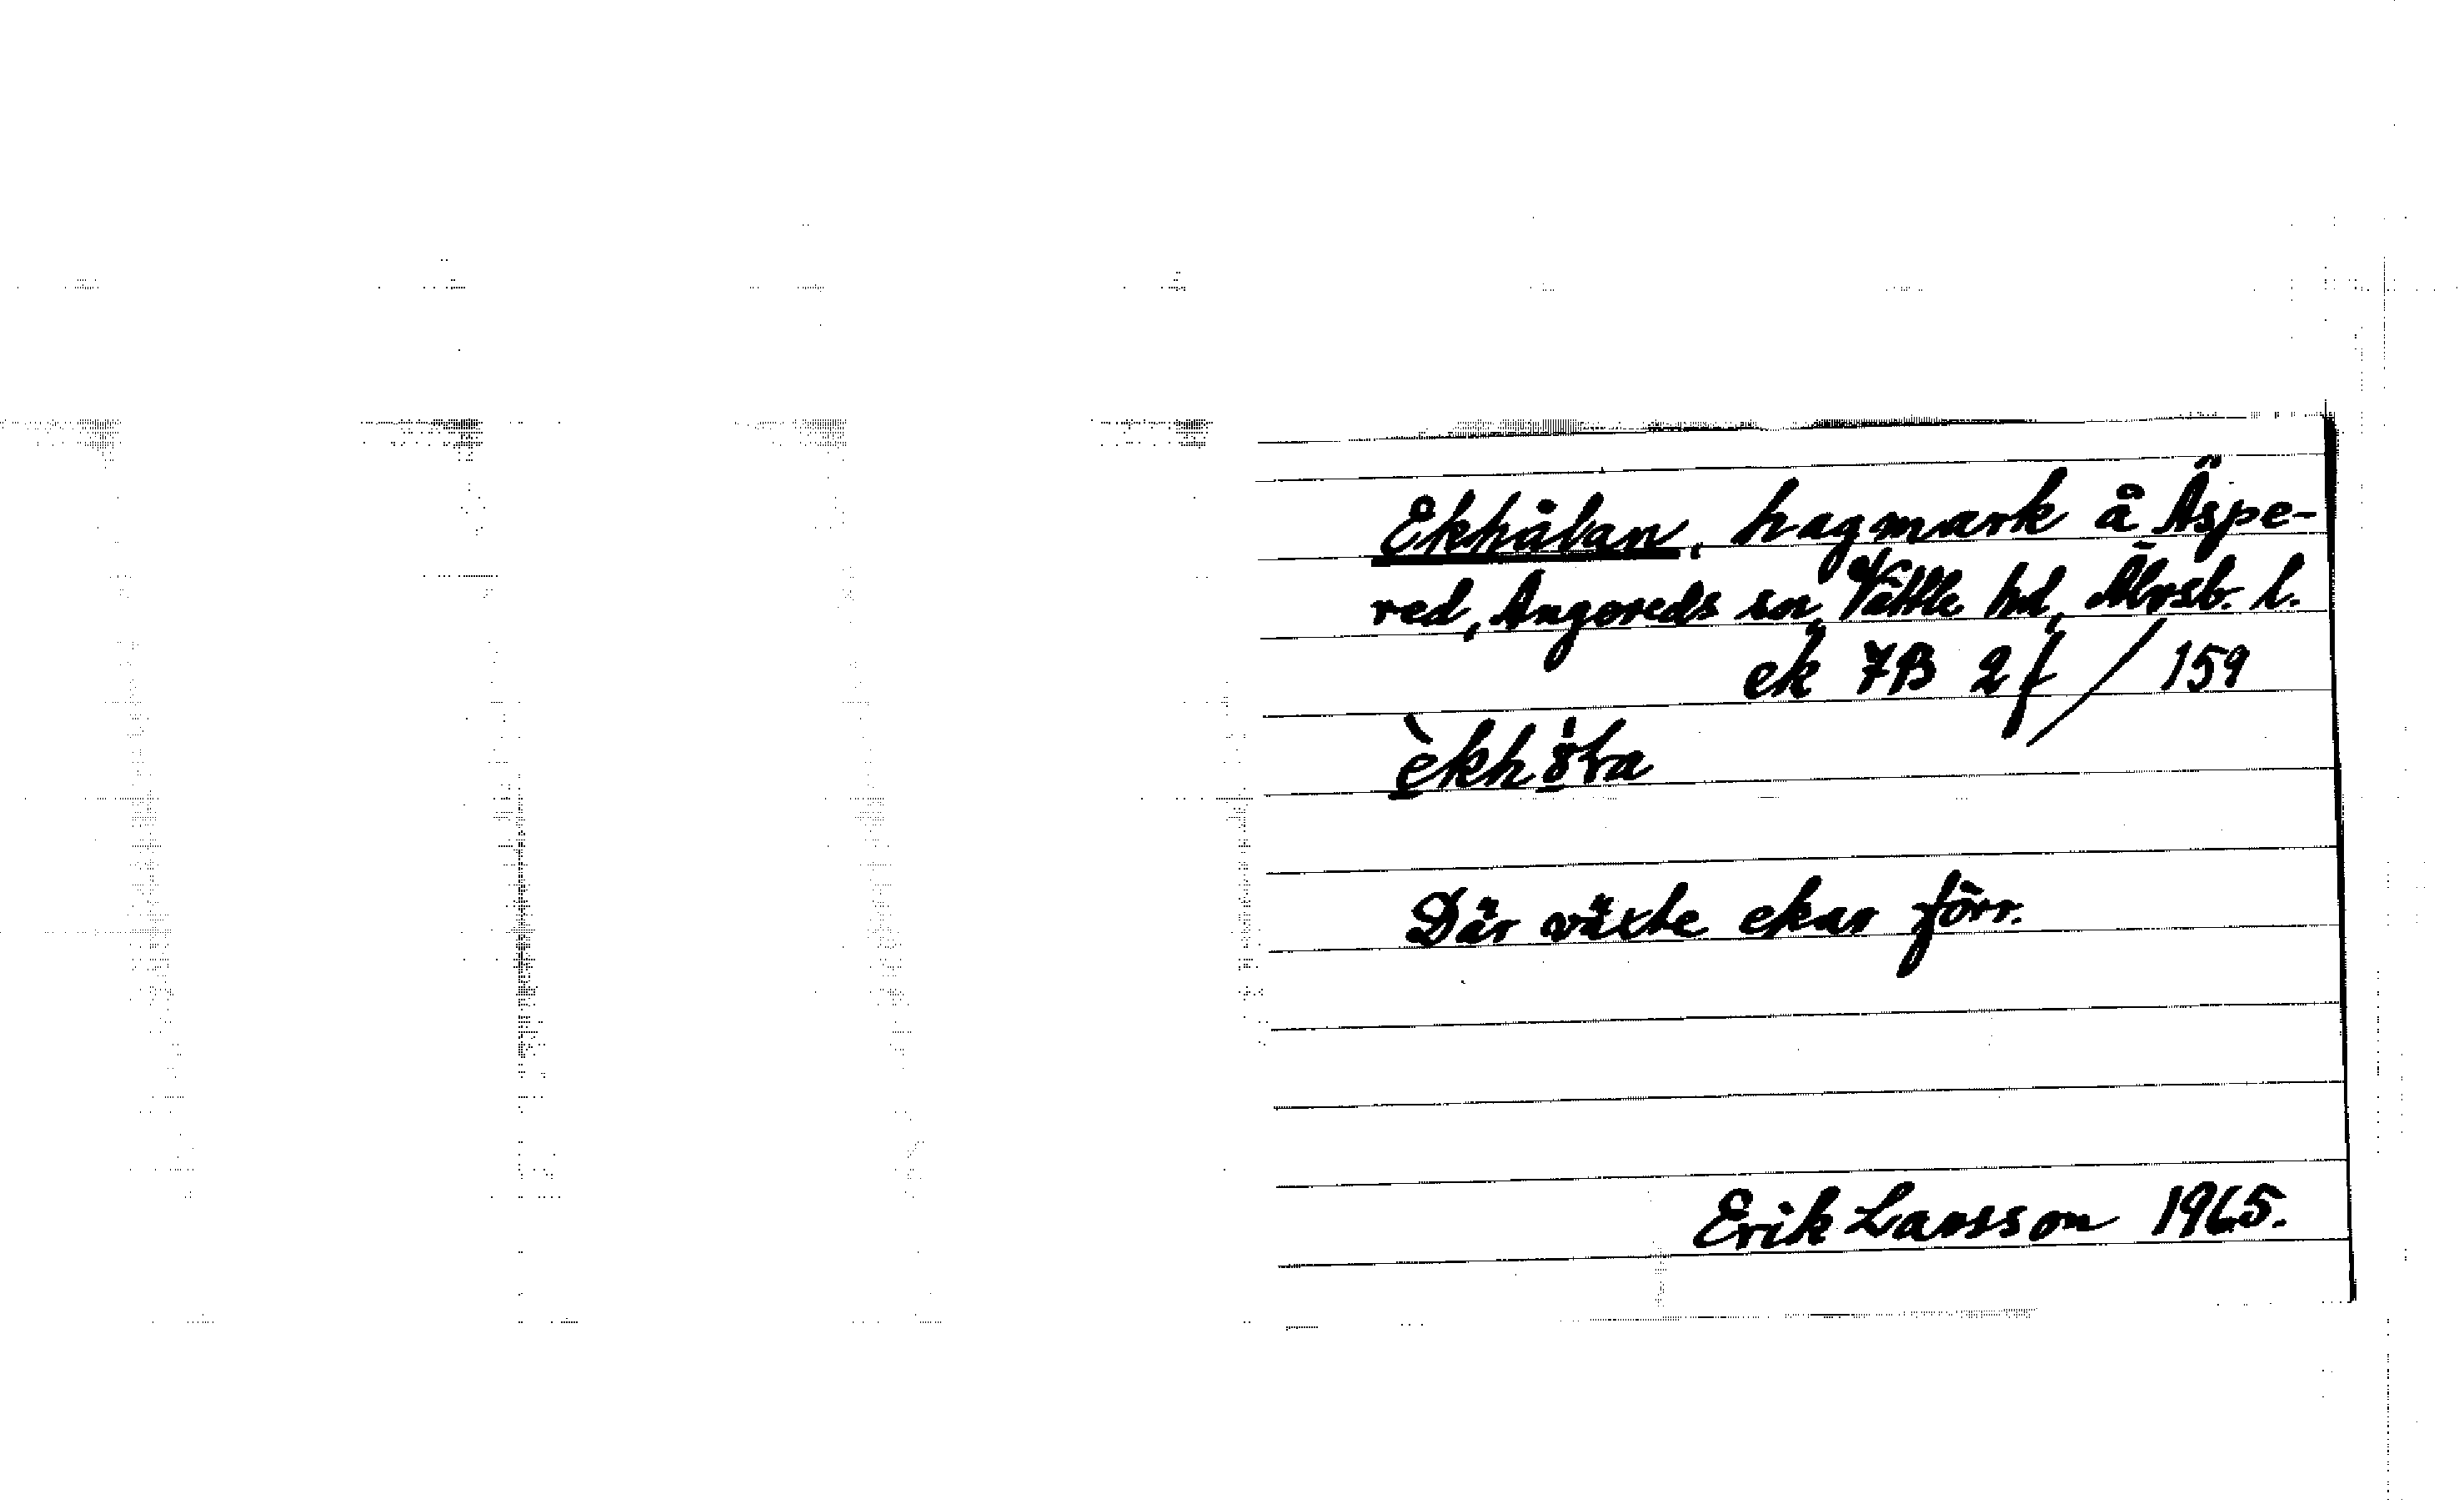 Ekhålan, hagmark å Äspe-
red, Angereds sn, Vättle hd, Älvsb. l.
ek 7B 2f / 159
Där växte ekar förr.
Erik Larsson 1965.